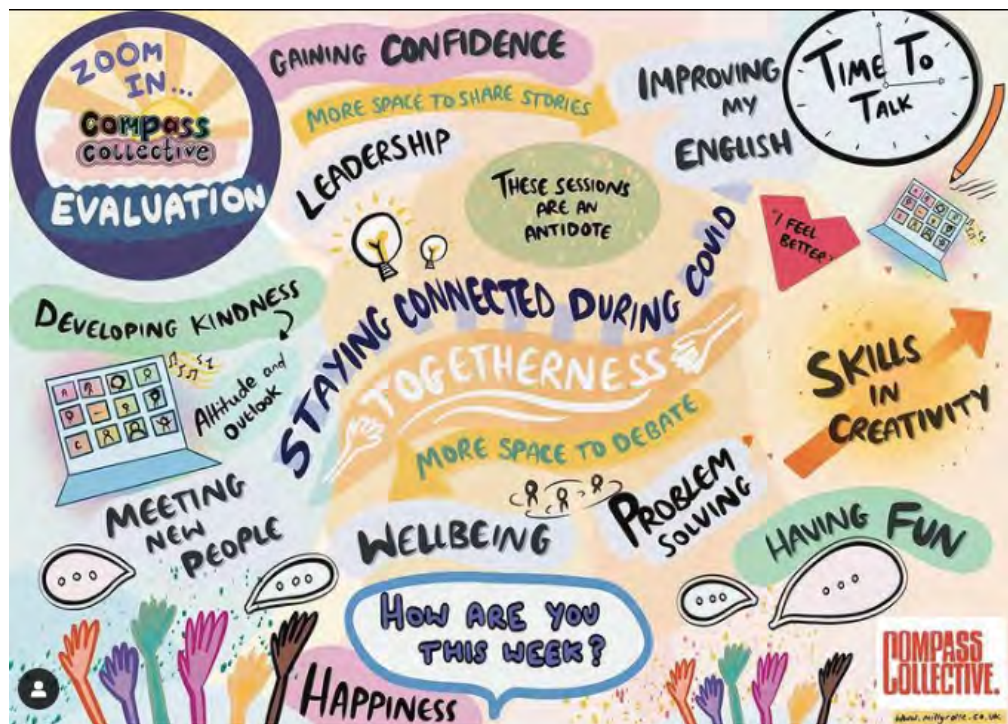 ZOOM
IN...
Compass
Collective
EVALUATION
GAINING CONFIDENCE
MORE SPACE TO SHARE STORIES
LEADERSHIP
IMPROVING
MY
ENGLISH
TIME TO
TALK
THESE SESSIONS
ARE AN
ANTIDOTE
"I FEEL
BETTER"
DEVELOPING KINDNESS
Attitude and
outlook
STAYING CONNECTED DURING COVID
TOGETHERNESS
MORE SPACE TO DEBATE
SKILLS
IN
CREATIVITY
MEETING
NEW
PEOPLE
WELLBEING
PROBLEM
SOLVING
HAVING FUN
HOW ARE YOU
THIS WEEK?
HAPPINESS
COMPASS
COLLECTIVE.